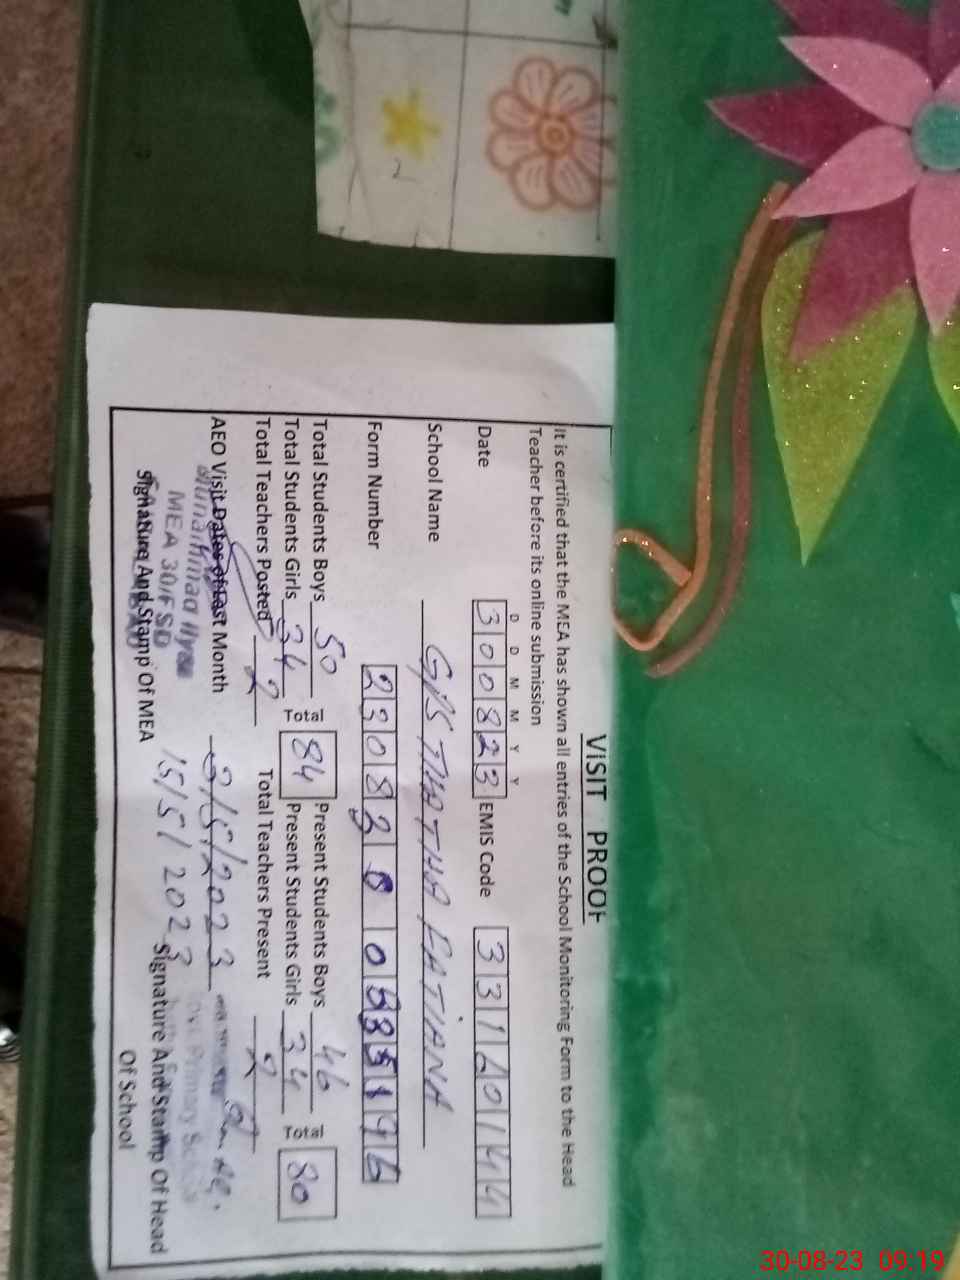 VISIT PROOF
It is certified that the MEA has shown all entries of the School Monitoring Form to the Head
Teacher before its online submission
D D M M Y Y
Date 300823 EMIS Code 33160144
School Name GPS THATHA FATIANA
Form Number
Total Students Boys 50 Total 84 Present Students Boys 46 Total 80
Total Students Girls 34 Present Students Girls 34
Total Teachers Posted 2 Total Teachers Present 2
AEO Visit Dates of Last Month 3/5/2023
15/5/2023
Muhammad Ilyas
MEA 30/FSD
Signature And Stamp Of MEA
Primary School
Signature And Stamp Of Head
Of School
30-08-23 09:19